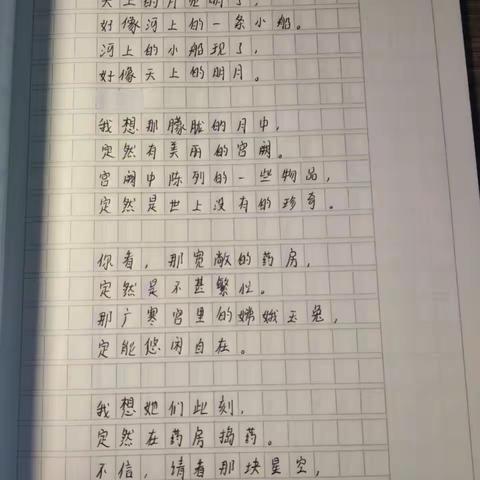 天上的月儿明了，
好像河上的一条小船。
河上的小船现了，
好像天上的明月。
我想那朦胧的月中，
定然有美丽的宫阙。
宫阙中陈列的一些物品，
定然是世上没有的珍奇。
你看，那宽敞的药房，
定然是不甚繁忙。
那广寒宫里的嫦娥玉兔，
定能悠闲自在。
我想她们此刻，
定然在药房捣药。
不信，请看那块星空，